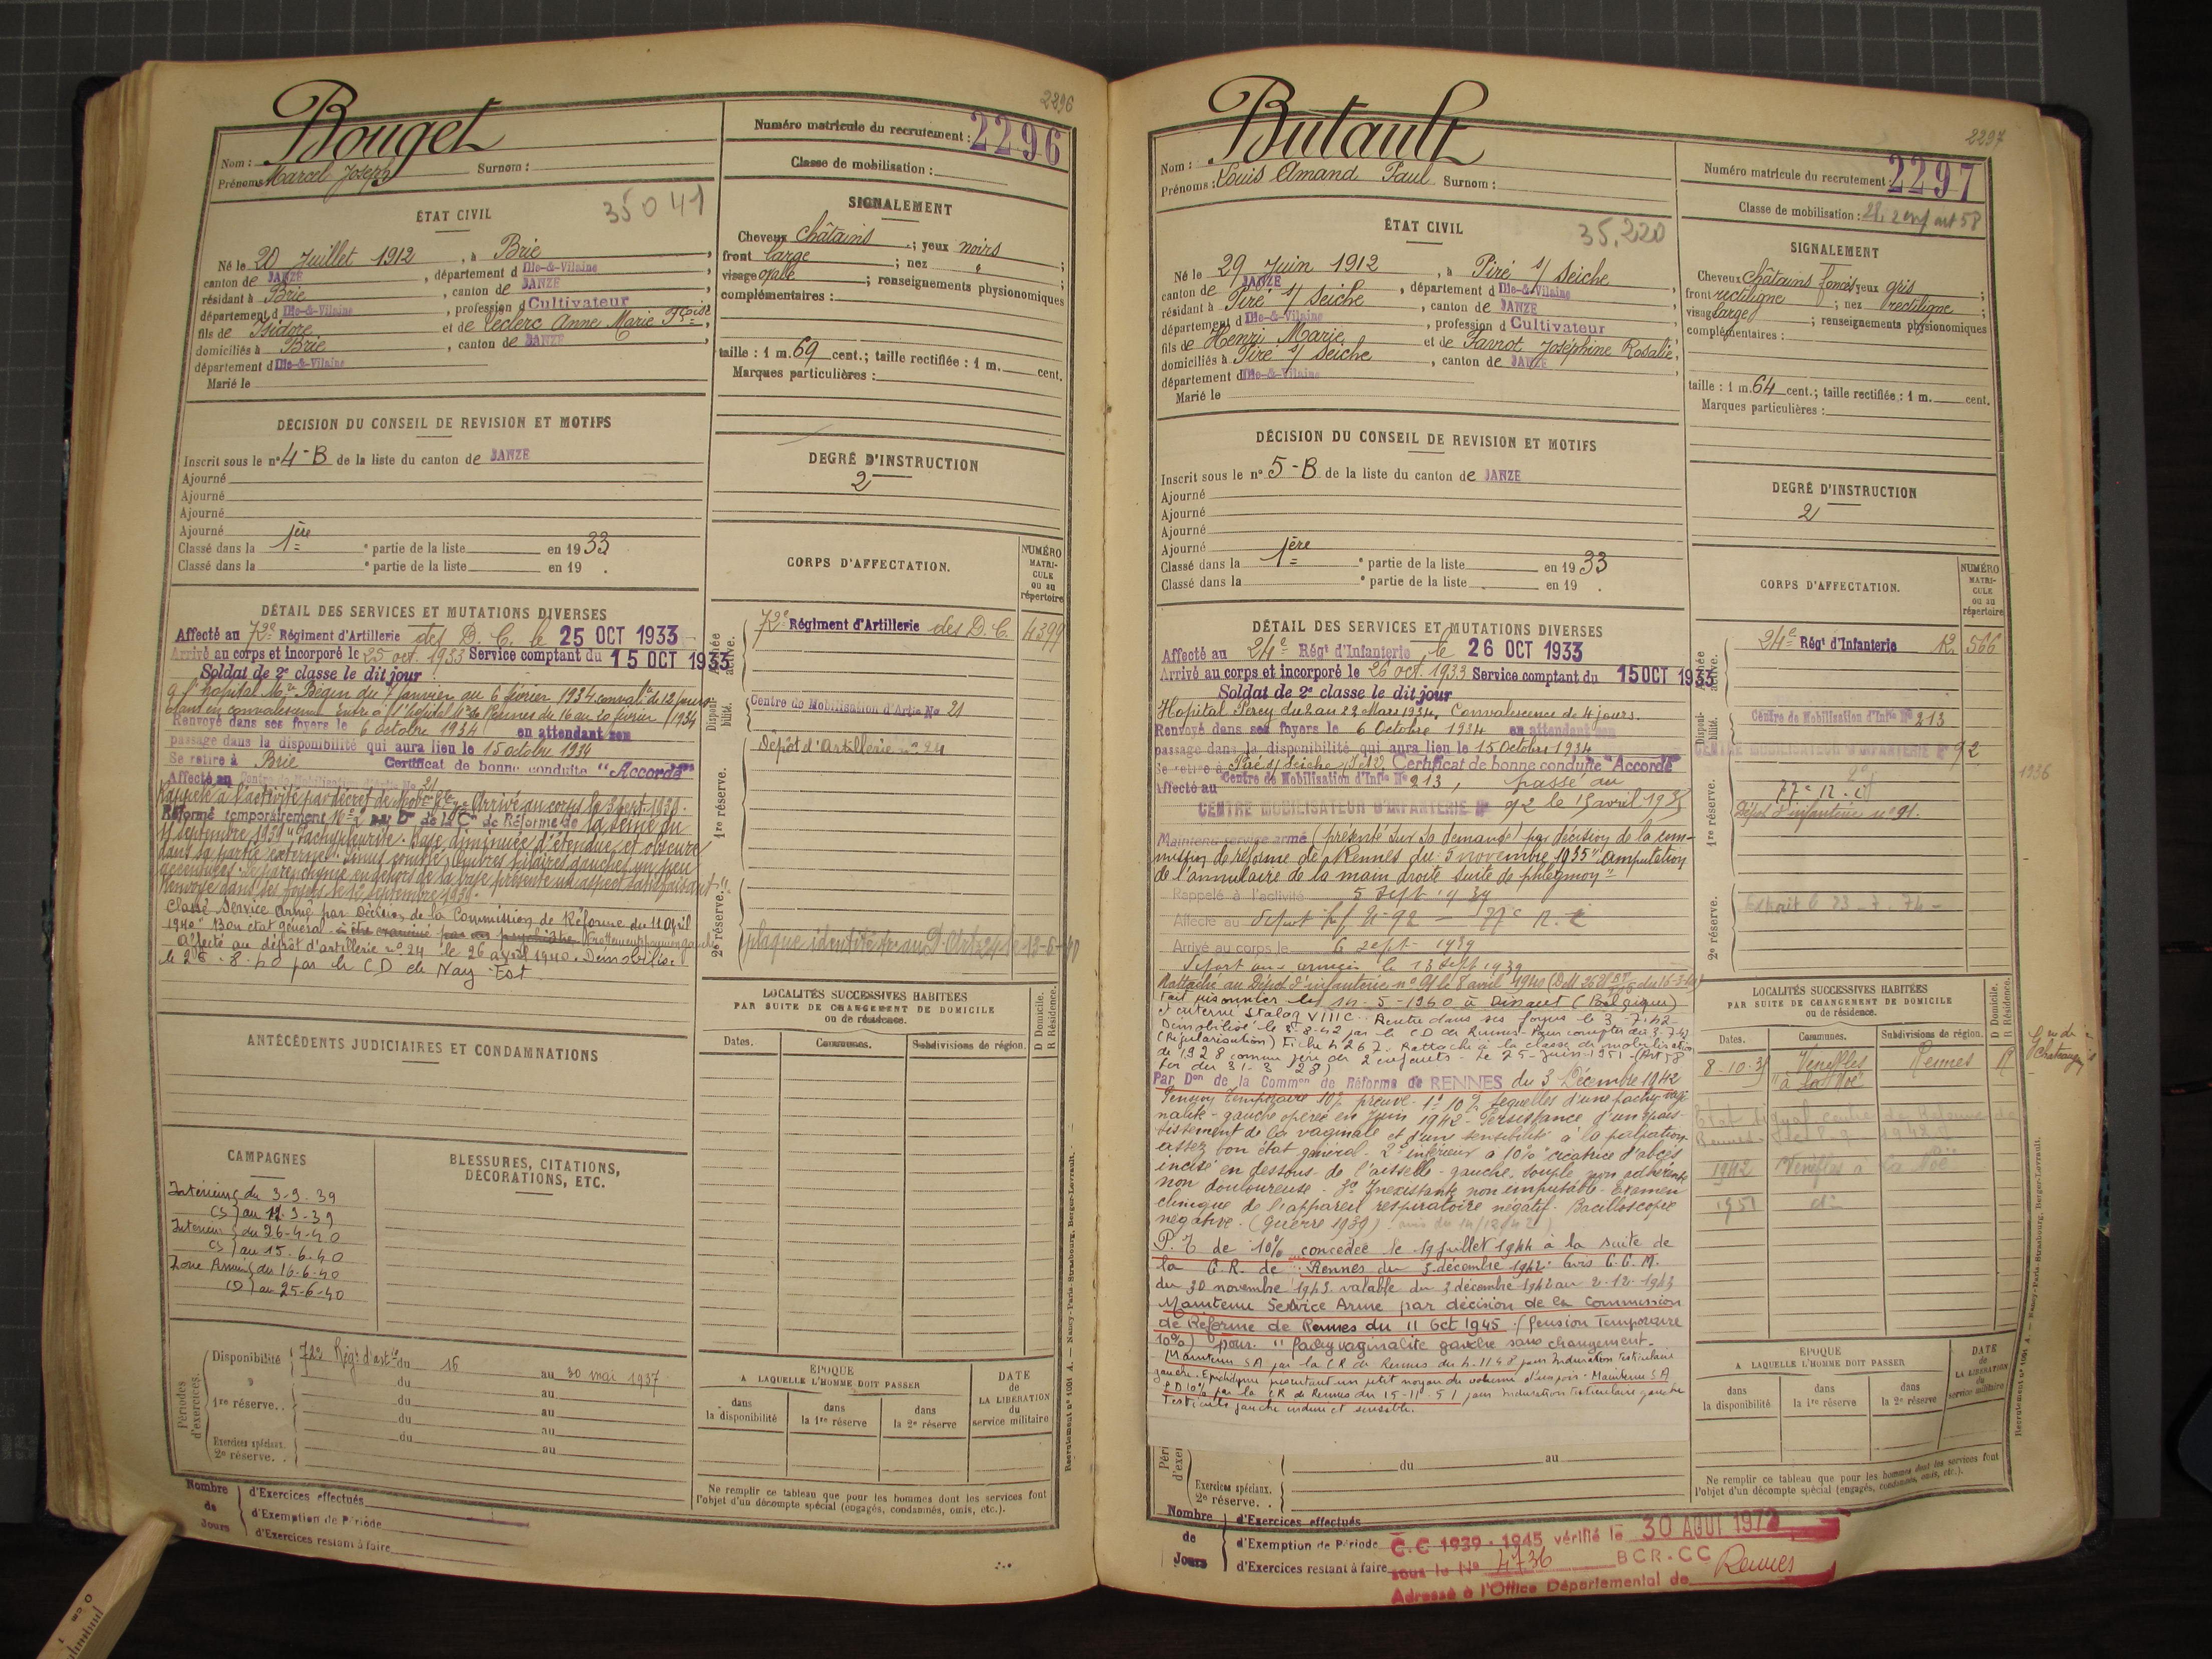 2296
Bouget
Nom :
Prénoms Marcel Joseph Surnom :
Numéro matricule du recrutement : 2296
Classe de mobilisation :
ÉTAT CIVIL
35041
Né le 20 Juillet 1912, à Brie,
canton de JANZE, département d Ille-&-Vilaine,
résidant à Brie, canton de JANZE,
département d Ille-&-Vilaine, profession d Cultivateur
fils de Isidore et de Leclerc Anne Marie Fçoise,
domiciliés à Brie, canton de JANZE
département d Ille-&-Vilaine
Marié le
SIGNALEMENT
Cheveux châtains ; yeux noirs ;
front large ; nez " ;
visage ovale ; renseignements physionomiques
complémentaires :
taille : 1 m. 69 cent. ; taille rectifiée : 1 m. cent.
Marques particulières :
DÉCISION DU CONSEIL DE REVISION ET MOTIFS
Inscrit sous le n° 4-B de la liste du canton de JANZE
Ajourné
Ajourné
Ajourné
Ajourné
Classé dans la 1ère e partie de la liste en 1933
Classé dans la e partie de la liste en 19 .
DEGRÉ D'INSTRUCTION
2
CORPS D'AFFECTATION.
NUMÉRO
MATRI-
CULE
ou au
répertoire
DÉTAIL DES SERVICES ET MUTATIONS DIVERSES
Affecté au 72e Régiment d'Artillerie des D. C. le 25 OCT 1933
Arrivé au corps et incorporé le 25 oct. 1933 Service comptant du 15 OCT 1933
Soldat de 2e classe le dit jour
à l'hôpital Mre Begin du 7 Janvier au 6 février 1934 convalce de 12 jours
étant en convalescence Entré à l'hôpital Mre de Rennes du 16 au 20 février 1934
Renvoyé dans ses foyers le 6 octobre 1934 en attendant son
passage dans la disponibilité qui aura lieu le 15 octobre 1934
Se retire à Brie Certificat de bonne conduite "Accordé"
Affecté au Centre de Mobilisation d'Artie No 21
Rappelé à l'activité par décret de Mobon Gle Arrivé au corps le 3 sept. 1939.
Réformé temporairement No 2 par Don de la Con de Réforme de la Seine du
11 septembre 1939 "Pachypleurite. Base diminuée d'étendue et obscure
dans sa partie externe. Sinus comblé. Ombres hilaires gauches un peu
accentuées. Le parenchyme en dehors de la base présente un aspect satisfaisant".
Renvoyé dans ses foyers le 12 septembre 1939
Classé Service Armé par Décision de la Commission de Réforme du 11 Avril
1940 "Bon état général
affecté au dépôt d'artillerie no 24 le 26 avril 1940. Démobilisé
le 26-8-40 par le C D de Nay Est
Armée active.
72e Régiment d'Artillerie des D. C. 4399
Disponibilité.
Centre de Mobilisation d'Artie No 21
Dépôt d'artillerie no 24
1re réserve.
2e réserve.
plaque identité
ANTÉCÉDENTS JUDICIAIRES ET CONDAMNATIONS
LOCALITÉS SUCCESSIVES HABITÉES
PAR SUITE DE CHANGEMENT DE DOMICILE
ou de résidence.
D Domicile.
R Résidence.
Dates. Communes. Subdivisions de région.
CAMPAGNES
Intérieur du 3-9-39
CS au 12-9-39
Intérieur du 26-4-40
CS au 15-6-40
Zone Armées du 16-6-40
CD au 25-6-40
BLESSURES, CITATIONS,
DÉCORATIONS, ETC.
Périodes d'exercices.
Disponibilité 72e Régt d'artie du 16 au 30 mai 1937
du au
1re réserve. . du au
du au
Exercices spéciaux. du au
2e réserve. . au
ÉPOQUE
A LAQUELLE L'HOMME DOIT PASSER
dans la disponibilité
dans la 1re réserve
dans la 2e réserve
DATE
de
LA LIBÉRATION
du
service militaire
Ne remplir ce tableau que pour les hommes dont les services font
l'objet d'un décompte spécial (engagés, condamnés, omis, etc.).
Nombre de Jours
d'Exercices effectués
d'Exemption de Période
d'Exercices restant à faire
Recrutement n° 1001 A. — Nancy-Paris-Strasbourg, Berger-Levrault.
2297
Butault
Nom :
Prénoms : Louis Amand Paul Surnom :
Numéro matricule du recrutement : 2297
Classe de mobilisation : 28, 2 enf art 58
ÉTAT CIVIL
35.220
Né le 29 Juin 1912, à Piré s/ Seiche
canton de JANZE, département d Ille-&-Vilaine
résidant à Piré s/ Seiche, canton de JANZE
département d Ille-&-Vilaine, profession d Cultivateur
fils de Henri Marie et de Janot Joséphine Rosalie,
domiciliés à Piré s/ Seiche, canton de JANZE
département d Ille-&-Vilaine
Marié le
SIGNALEMENT
Cheveux châtains foncés yeux gris ;
front rectiligne ; nez rectiligne ;
visage large ; renseignements physionomiques
complémentaires :
taille : 1 m. 64 cent. ; taille rectifiée : 1 m. cent.
Marques particulières :
DÉCISION DU CONSEIL DE REVISION ET MOTIFS
Inscrit sous le n° 5-B de la liste du canton de JANZE
Ajourné
Ajourné
Ajourné
Ajourné
Classé dans la 1ère e partie de la liste en 1933
Classé dans la e partie de la liste en 19 .
DEGRÉ D'INSTRUCTION
2
CORPS D'AFFECTATION.
NUMÉRO
MATRI-
CULE
ou au
répertoire
DÉTAIL DES SERVICES ET MUTATIONS DIVERSES
Affecté au 24e Régt d'Infanterie le 26 OCT 1933
Arrivé au corps et incorporé le 26 oct. 1933 Service comptant du 15 OCT 1933
Soldat de 2e classe le dit jour
Hôpital Percy du 2 au 22 Mars 1934. Convalescence de 4 jours.
Renvoyé dans ses foyers le 6 Octobre 1934 en attendant son
passage dans la disponibilité qui aura lieu le 15 Octobre 1934
Se retire à Piré s/ Seiche Certificat de bonne conduite "Accordé"
Affecté au Centre de Mobilisation d'Infie No 213, passé au
CENTRE MOBILISATEUR D'INFANTERIE No 92 le 15 avril 1935
Maintenu service armé (présenté sur sa demande) par décision de la com-
mission de réforme de Rennes du 5 novembre 1935 "amputation
de l'annulaire de la main droite suite de phlegmon"
Rappelé à l'activité 5 Sept 1939
Affecté au Dépôt Inf no 92 — 77e R. I
Arrivé au corps le 6 sept 1939
Départ aux armées le 13 sept 1939
Rattaché au Dépôt d'infanterie no 91 le 8 avril 1940
Fait prisonnier le 14-5-1940 à Dinant (Belgique)
et interné Stalag VIII C. Rentré dans ses foyers le 3-7-42
Démobilisé le 3-8-42 par le C D de Rennes. Pour compter du 3-7-42
(Régularisation) Fiche no 267. Rattaché à la classe de mobilisation
de 1928 comme père de 2 enfants - le 25-juin-1951 - (Art 58
loi du 31-3-28)
Par Don de la Common de Réforme de RENNES du 3 Décembre 1942
Pension temporaire 10% preuve. 1° 10% séquelles d'une pachy-vagi-
nalite gauche opérée en Juin 1942. Persistance d'un épais-
sissement de la vaginale et d'une sensibilité à la palpation.
assez bon état général. 2° inférieur à 10% cicatrice d'abcès
incisé en dessous de l'aisselle gauche, souple non adhérente
non douloureuse. 3° Inexistante non imputable. Examen
clinique de l'appareil respiratoire négatif. Bacilloscopie
négative. (guerre 1939)
P. T de 10% concédée le 19 juillet 1944 à la suite de
la C. R. de Rennes du 3 décembre 1942. Avis C. C. M.
du 30 novembre 1943. valable du 3 décembre 1942 au 2.12.1943
Maintenu Service Armé par décision de la Commission
de Réforme de Rennes du 11 Oct 1945 (Pension Temporaire
10%) pour "Pachyvaginalite gauche sans changement-
Maintenu SA par la CR de Rennes du 4.11.48 pour Induration testiculaire
gauche. Epididyme présentant un petit noyau du volume d'un pois. Maintenu SA
P D 10% par la CR de Rennes du 15-11-51 pour Induration testiculaire gauche
Testicule gauche induré et sensible.
Armée active.
24e Régt d'Infanterie 12. 566
Disponibilité.
Centre de Mobilisation d'Infie No 213
CENTRE MOBILISATEUR D'INFANTERIE No 92
1936
1re réserve.
77e R. I
Dépôt d'infanterie no 91.
2e réserve.
LOCALITÉS SUCCESSIVES HABITÉES
PAR SUITE DE CHANGEMENT DE DOMICILE
ou de résidence.
D Domicile.
R Résidence.
Dates. Communes. Subdivisions de région.
8-10-35 Venèfles "à la Noë" Rennes R
1942 Venèfles à la Noë
1951 do
ÉPOQUE
A LAQUELLE L'HOMME DOIT PASSER
dans la disponibilité
dans la 1re réserve
dans la 2e réserve
DATE
de
LA LIBÉRATION
du
service militaire
Ne remplir ce tableau que pour les hommes dont les services font
l'objet d'un décompte spécial (engagés, condamnés, omis, etc.).
du au
Exercices spéciaux.
2e réserve. .
Nombre de Jours
d'Exercices effectués
d'Exemption de Période
d'Exercices restant à faire
C.C 1939-1945 vérifié le 30 AOUT 1972
sous le No 4736 BCR-CC Rennes
Adressé à l'Office Départemental de
Recrutement n° 1001 A. — Nancy-Paris-Strasbourg, Berger-Levrault.